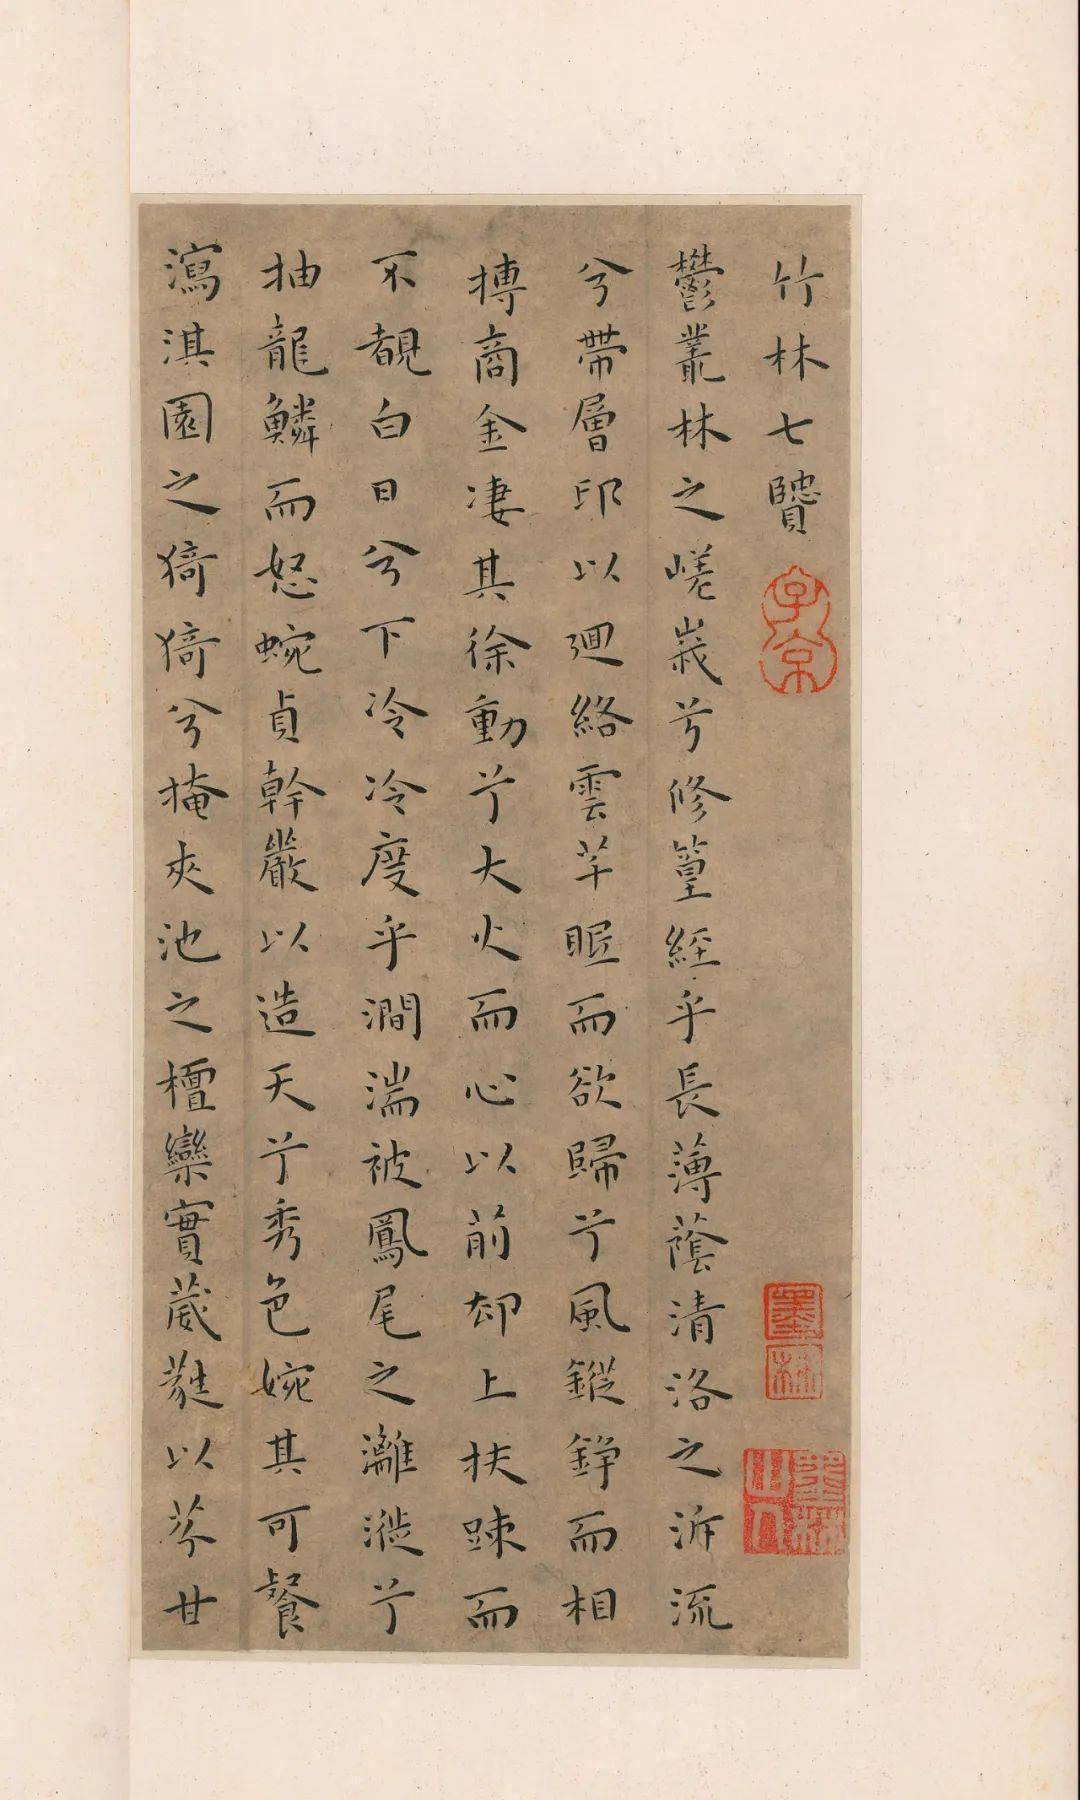 竹林七賢
鬱叢林之嵯峩兮修篁經乎長薄蔭清洛之泝流
兮帶層卬以迴絡雲芊眠而欲歸兮風鏦錚而相
摶商金凄其徐動兮大火而心以前却上扶疎而
不覩白日兮下冷冷度乎澗湍被鳳尾之灕漇兮
抽龍鱗而怒蜿貞幹嚴以造天兮秀色婉其可餐
瀉淇園之猗猗兮掩夾池之檀欒實葳蕤以芬甘
子京
墨林
墨林山人